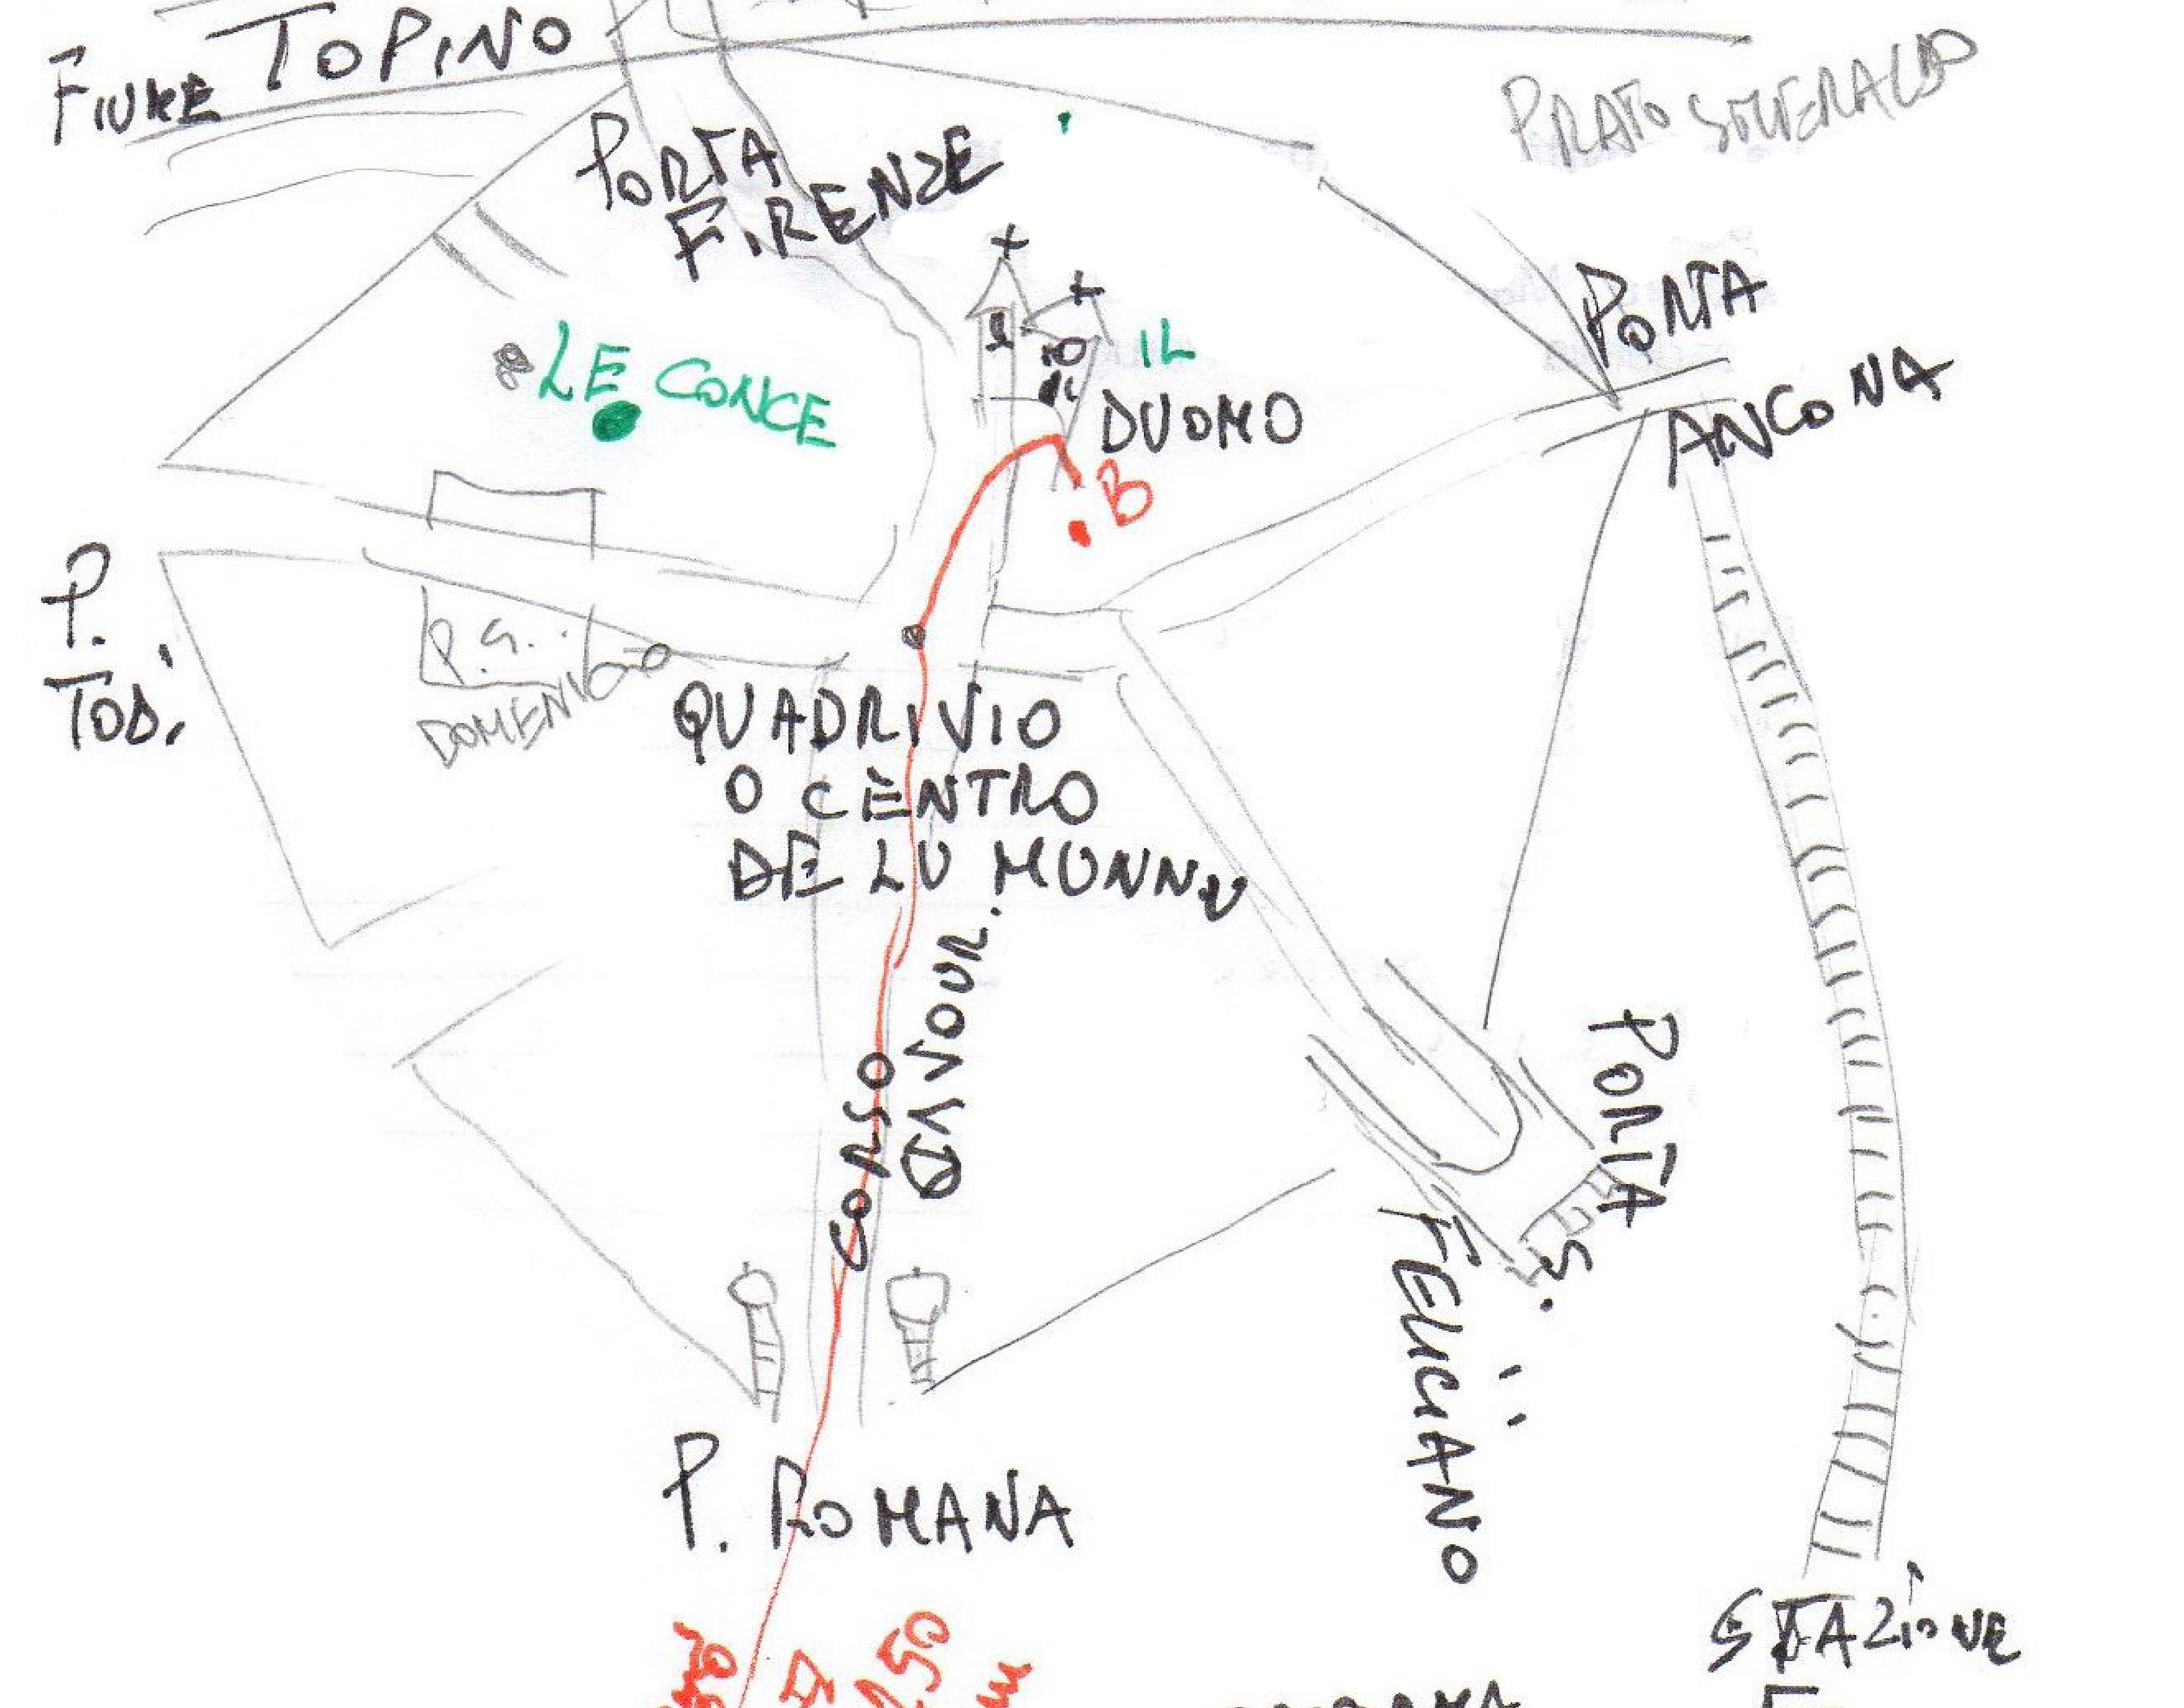 FIUME TOPINO
PRATO SMERALDO
PORTA
FIRENZE
PORTA
ANCONA
LE CONCE
IL
DUOMO
B
P.
TODI
P. S.
DOMENICO
QUADRIVIO
O CENTRO
DE LU MUNNU
CORSO
CAVOUR.
PORTA
S.
FELICIANO
P. ROMANA
STAZIONE